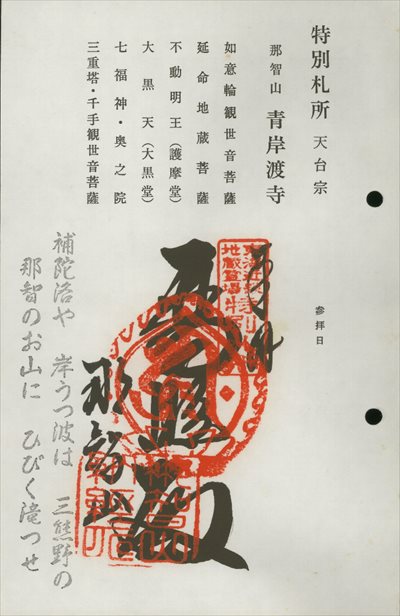 特別札所 天台宗
那智山 青岸渡寺
如意輪観世音菩薩
延命地蔵菩薩
不動明王（護摩堂）
大黒天（大黒堂）
七福神・奥之院
三重塔・千手観世音菩薩
参拝日
奉拝
那智山
補陀洛や 岸うつ波は 三熊野の
那智のお山に ひびく滝つせ